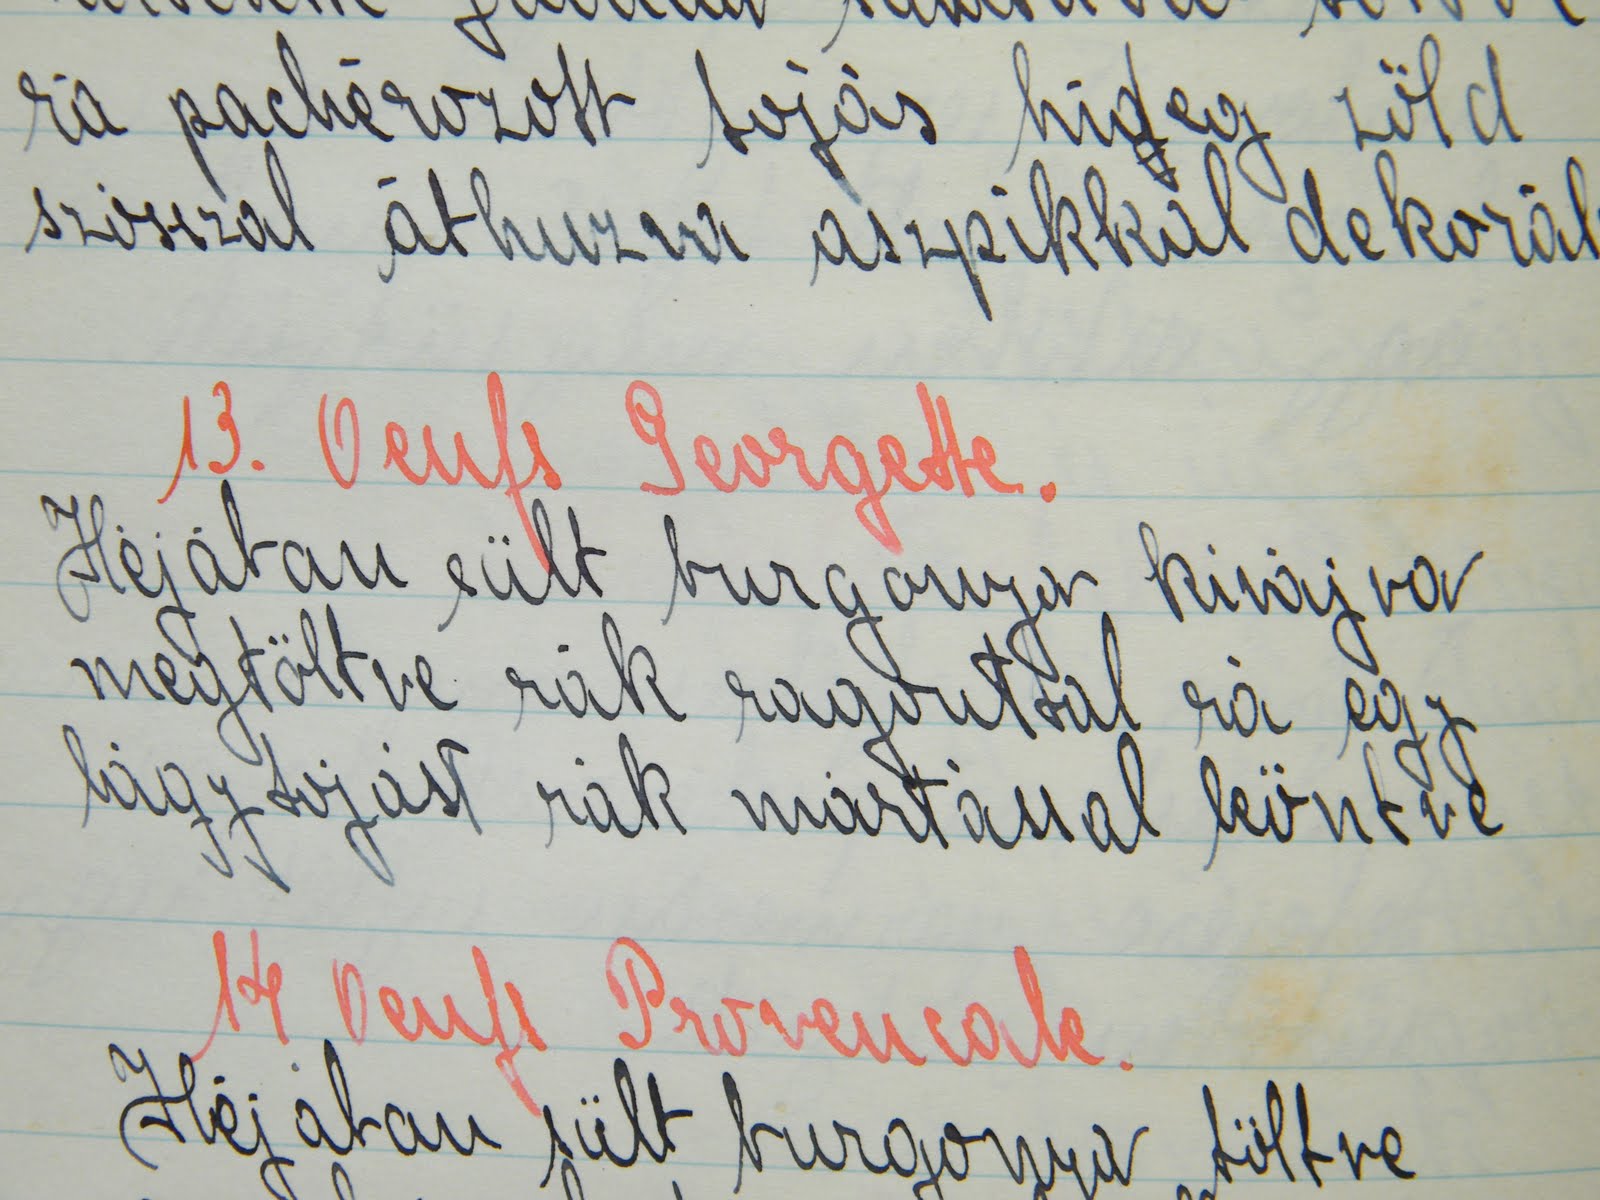 rá pachérozott tojás hideg zöld
szósszal áthuzva aszpikkal dekorál
13. Oeufs Georgette.
Héjában sült burgonya kivájva
megtöltve rák ragoutsal rá egy
lágy tojást rák mártással leöntve
14 Oeufs Provencale.
Héjában sült burgonya töltve